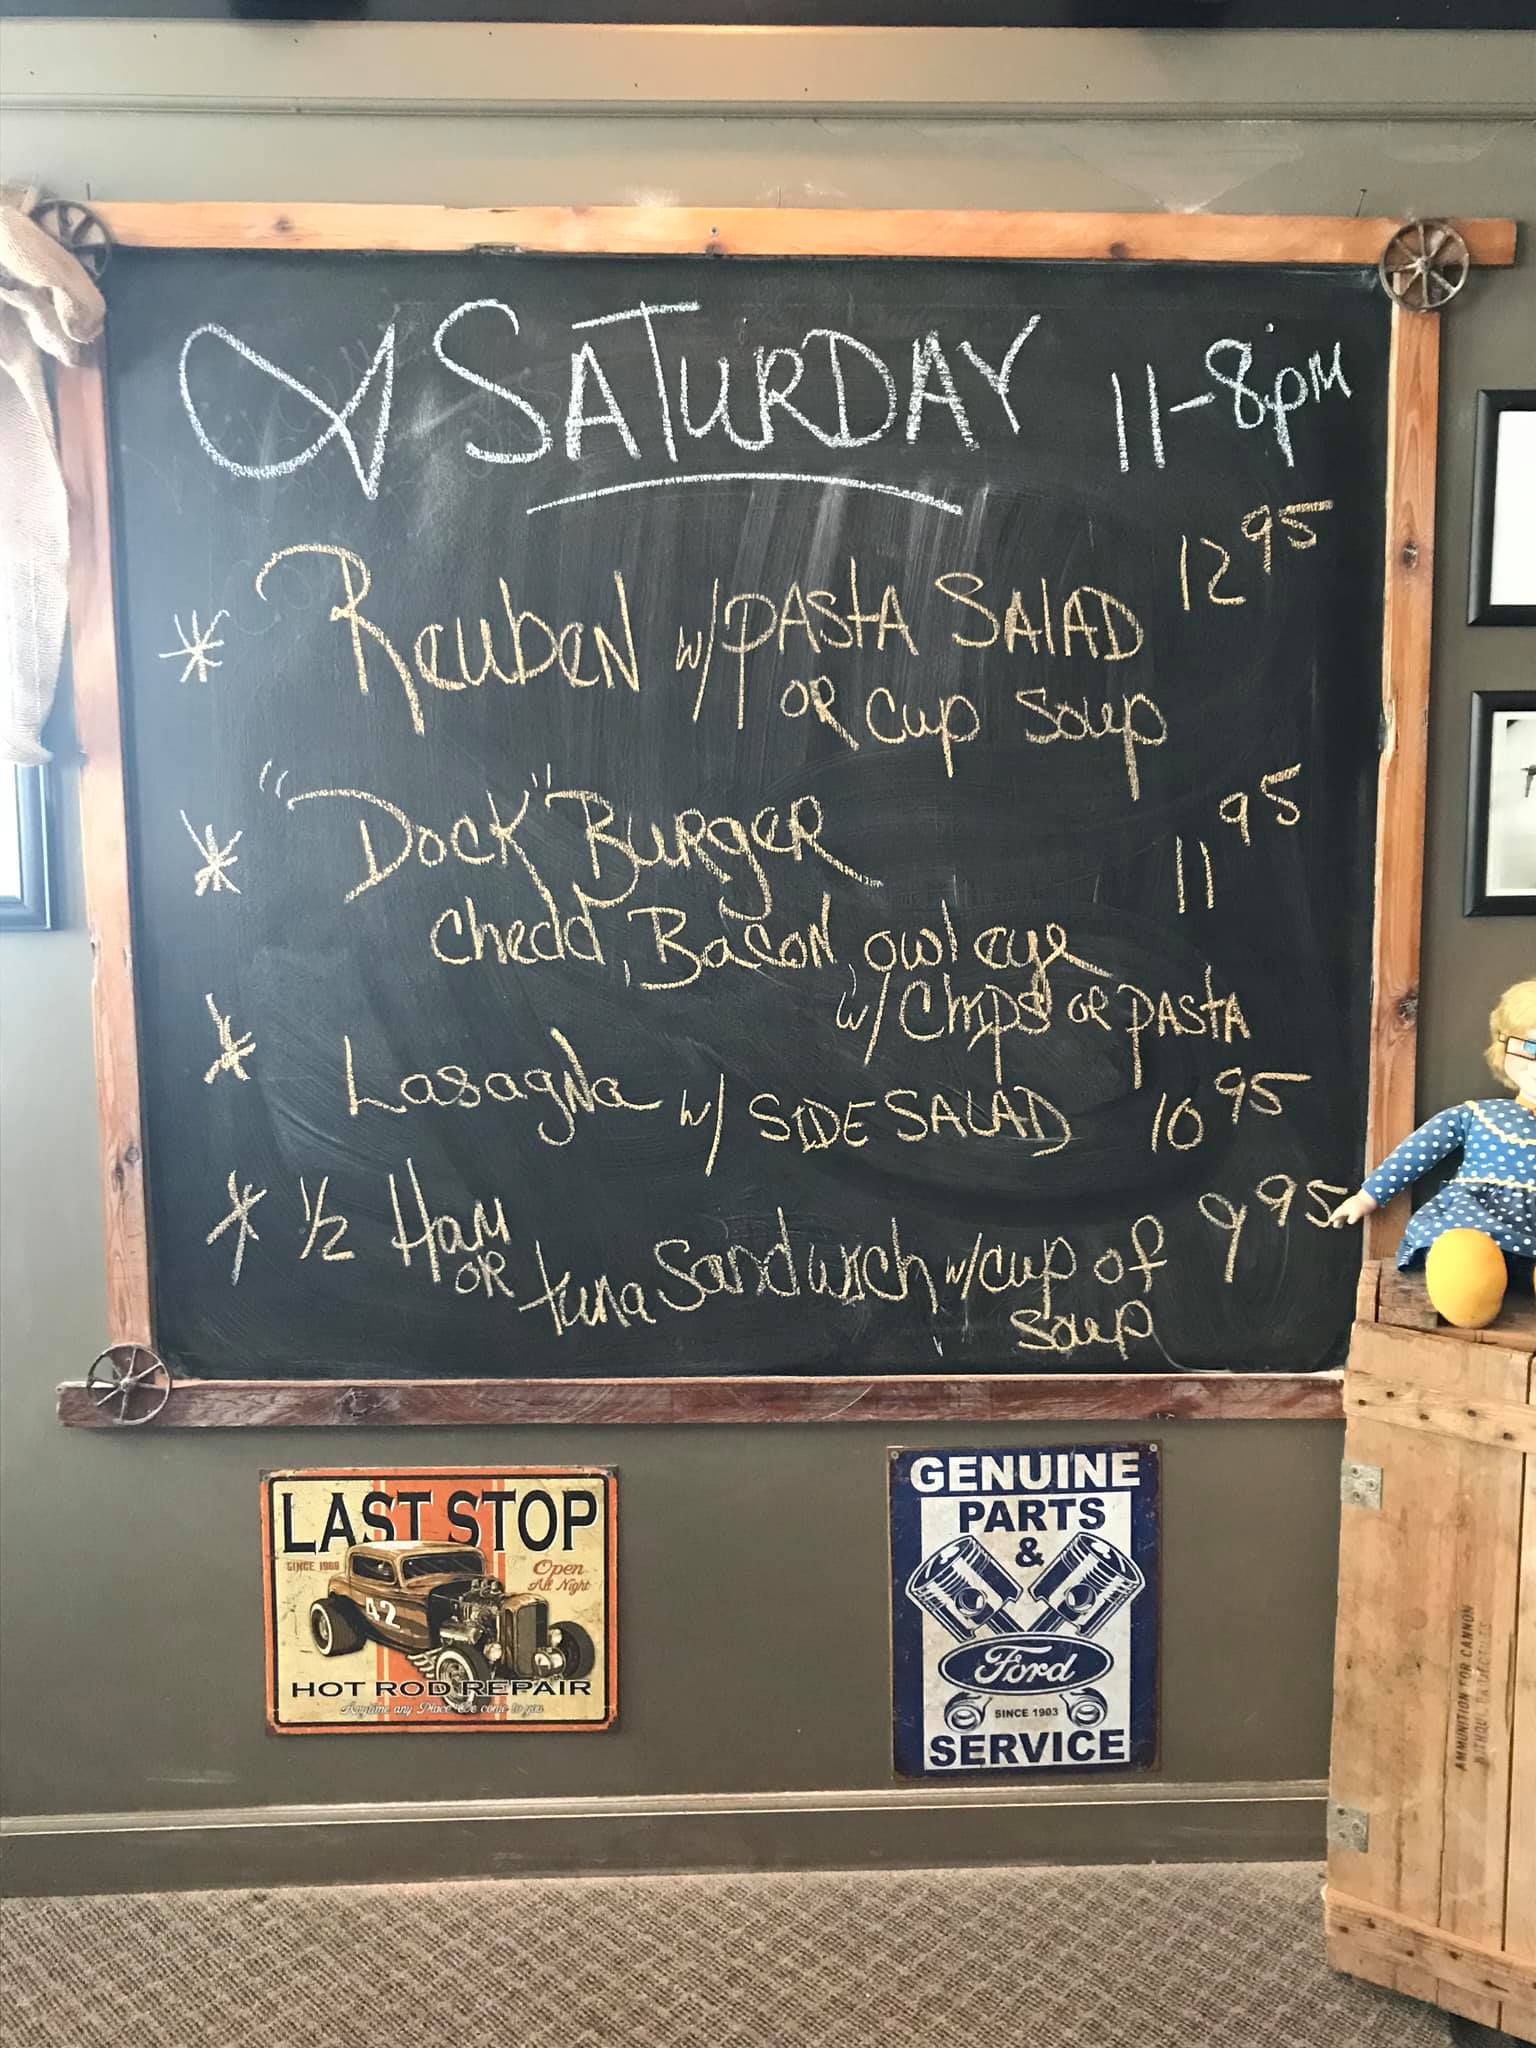 SATURDAY 11-8pm
* Reuben w/ PASTA SALAD 12 95
or cup soup
* "Dock" Burger 11 95
chedd, Bacon, owl eye
w/ Chips or PASTA
* Lasagna w/ SIDE SALAD 10 95
* 1/2 Ham or tuna Sandwich w/ cup of soup 9 95
LAST STOP
SINCE 1969
Open
All Night
42
HOT ROD REPAIR
Anytime any Place We come to you
GENUINE
PARTS
&
Ford
SINCE 1903
SERVICE
AMMUNITION FOR CANNON
WITHOUT PROJECTILES